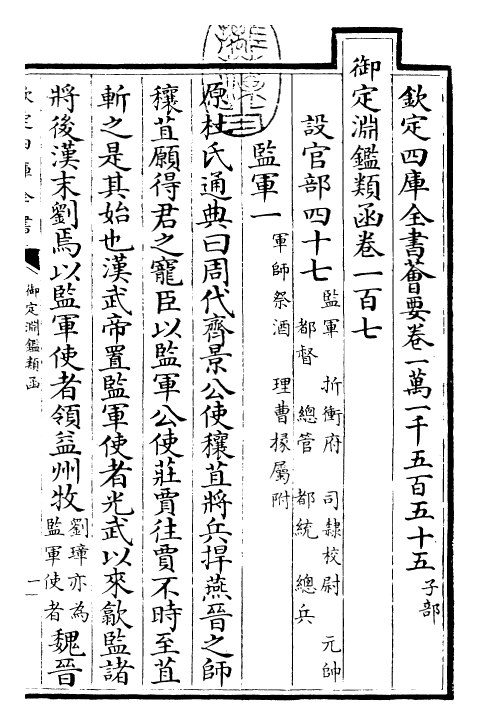 欽定四庫全書薈要卷一萬一千五百五十五 子部
御定淵鑑類函卷一百七
設官部四十七 監軍 折衝府 司隸校尉 元帥
都督 總管 都統 總兵
監軍一 軍師祭酒 理曹掾屬附
原杜氏通典曰周代齊景公使穰苴將兵捍燕晉之師
穰苴願得君之寵臣以監軍公使莊賈往賈不時至苴
斬之是其始也漢武帝置監軍使者光武以來歙監諸
將後漢末劉焉以監軍使者領益州牧 劉璋亦為監軍使者 魏晉
欽定四庫全書
御定淵鑑類函
一